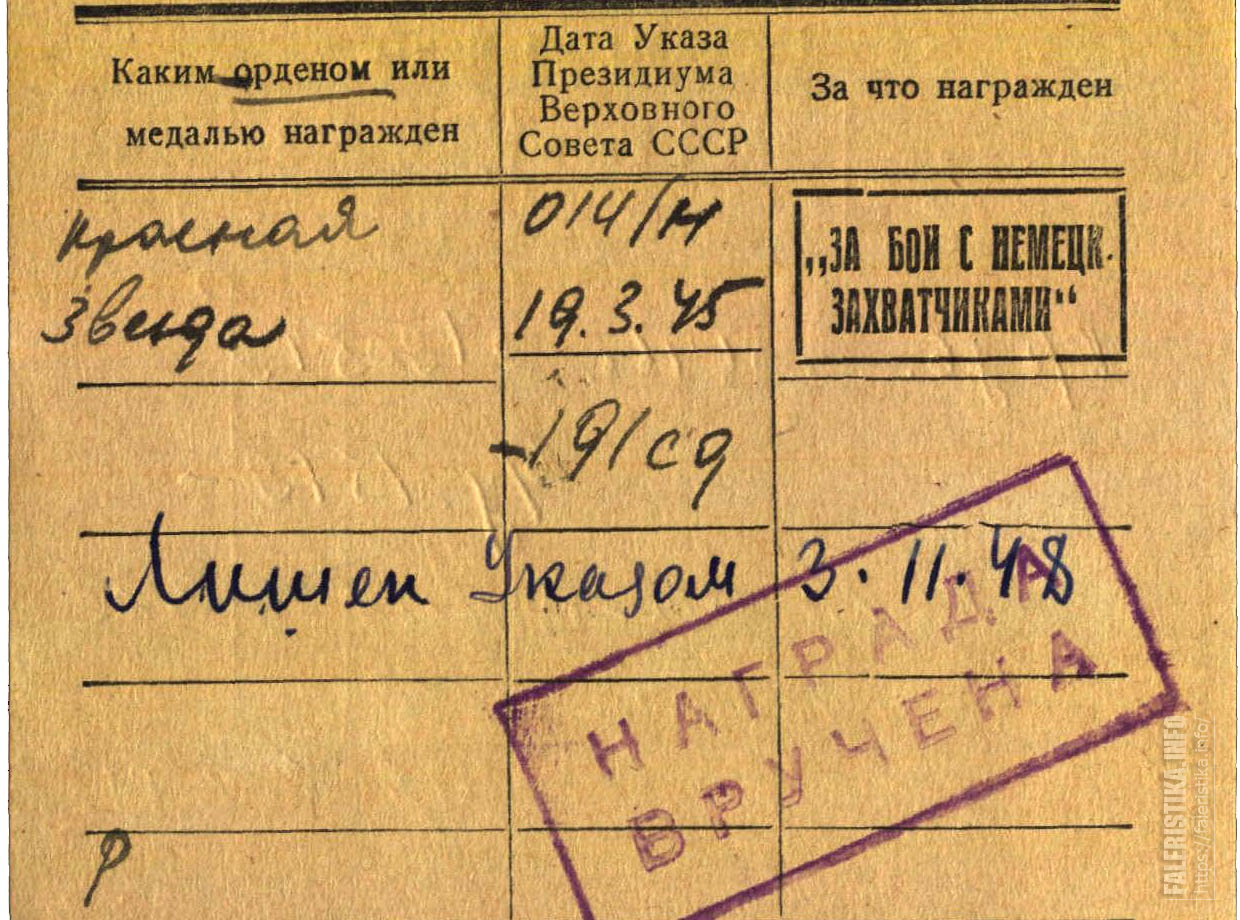 Каким орденом или
медалью награжден
Дата Указа
Президиума
Верховного
Совета СССР
За что награжден
Красная
Звезда
014/н
19.3.45
„ЗА БОИ С НЕМЕЦК.
ЗАХВАТЧИКАМИ“
-191 сд
Лишен Указом 3.11.48
НАГРАДА
ВРУЧЕНА
Р
FALERISTIKA.INFO
https://faleristika.info/